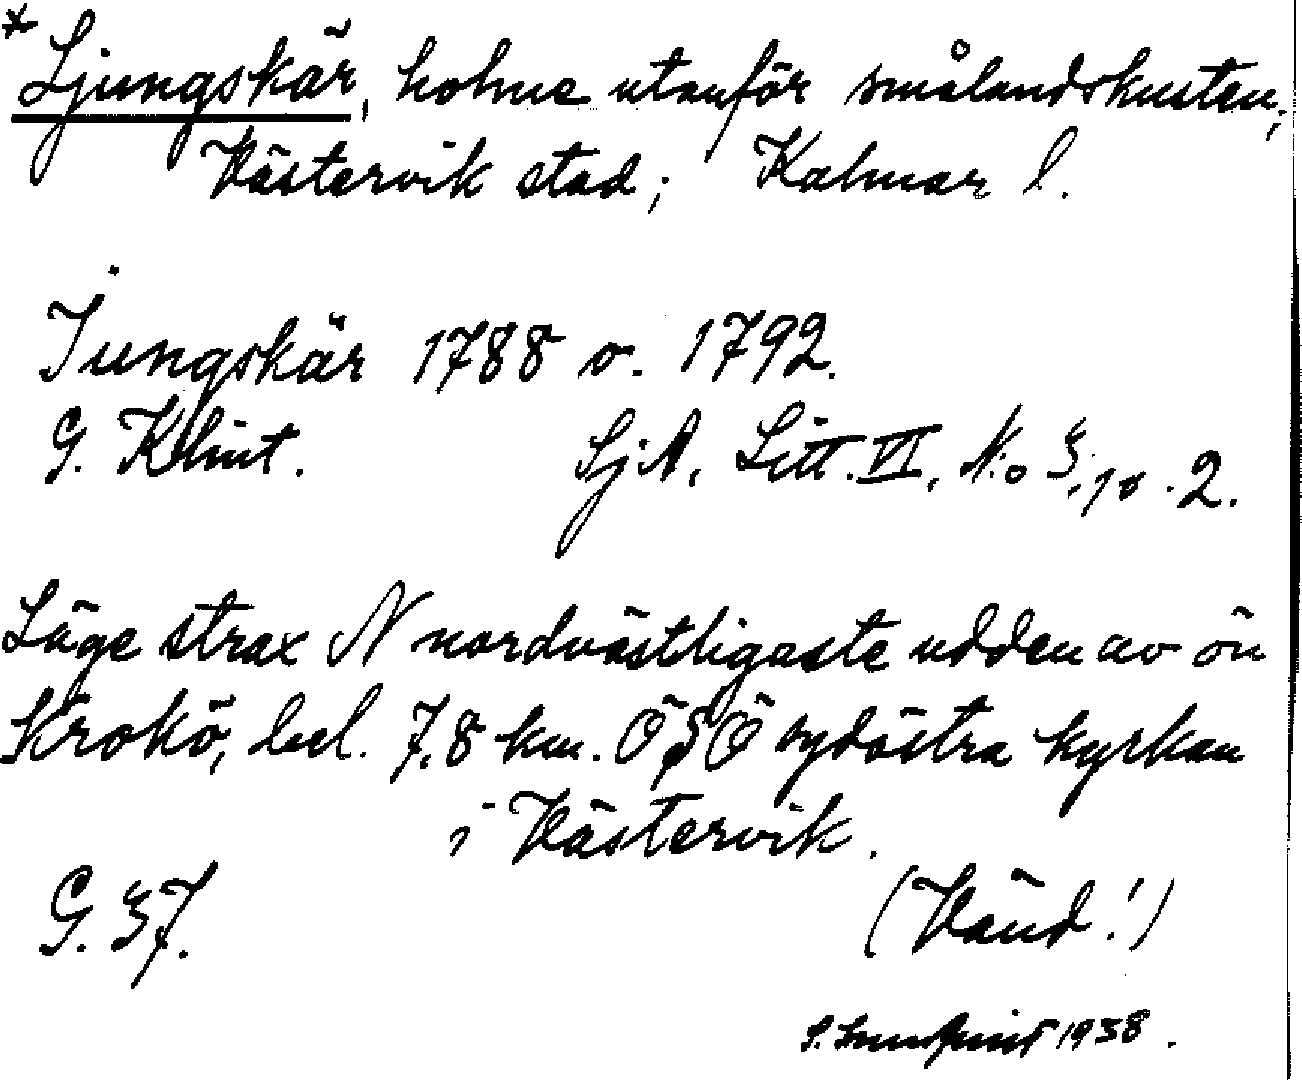 * Ljungskär, holme utanför smålandskusten,
Västervik stad; Kalmar l.
Jungskär 1788 o. 1792.
G. Klint. SjA, Litt. VI, N:o 3, 10. 2.
Läge strax N nordvästligaste udden av ön
Krokö, bel. 7,8 km. ÖSÖ sydöstra kyrkan
i Västervik.
G. 37. (Vänd!)
1938.